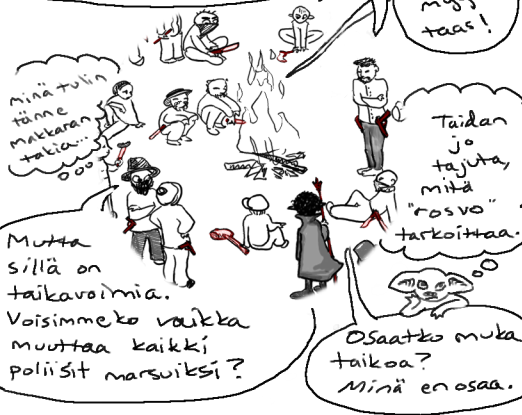 taas!
minä tulin
tänne
makkaran
takia...
Taidan
jo
tajuta,
mitä
"rosvo"
tarkoittaa.
Mutta
sillä on
taikavoimia.
Voisimmeko vaikka
muuttaa kaikki
poliisit marsuiksi?
Osaatko muka
taikoa?
Minä en osaa.